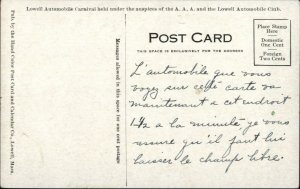 Lowell Automobile Carnival held under the auspices of the A. A. A. and the Lowell Automobile Club.
POST CARD
THIS SPACE IS EXCLUSIVELY FOR THE ADDRESS
Place Stamp
Here
Domestic
One Cent
Foreign
Two Cents
Pub. by the Hand Color Post Card and Calendar Co., Lowell, Mass.
Messages allowed in this space for one cent postage
L'automobile que vous
voyz sur cette carte va
maintenant a cet endroit
a la minute je vous
assure qu'il faut lui
laisser le champ libre.